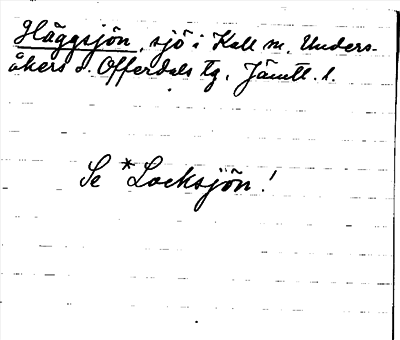 Häggsjön, sjö i Kall m. Unders-
åkers o. Offerdals tg. Jämtl. l.
Se *Locksjön!